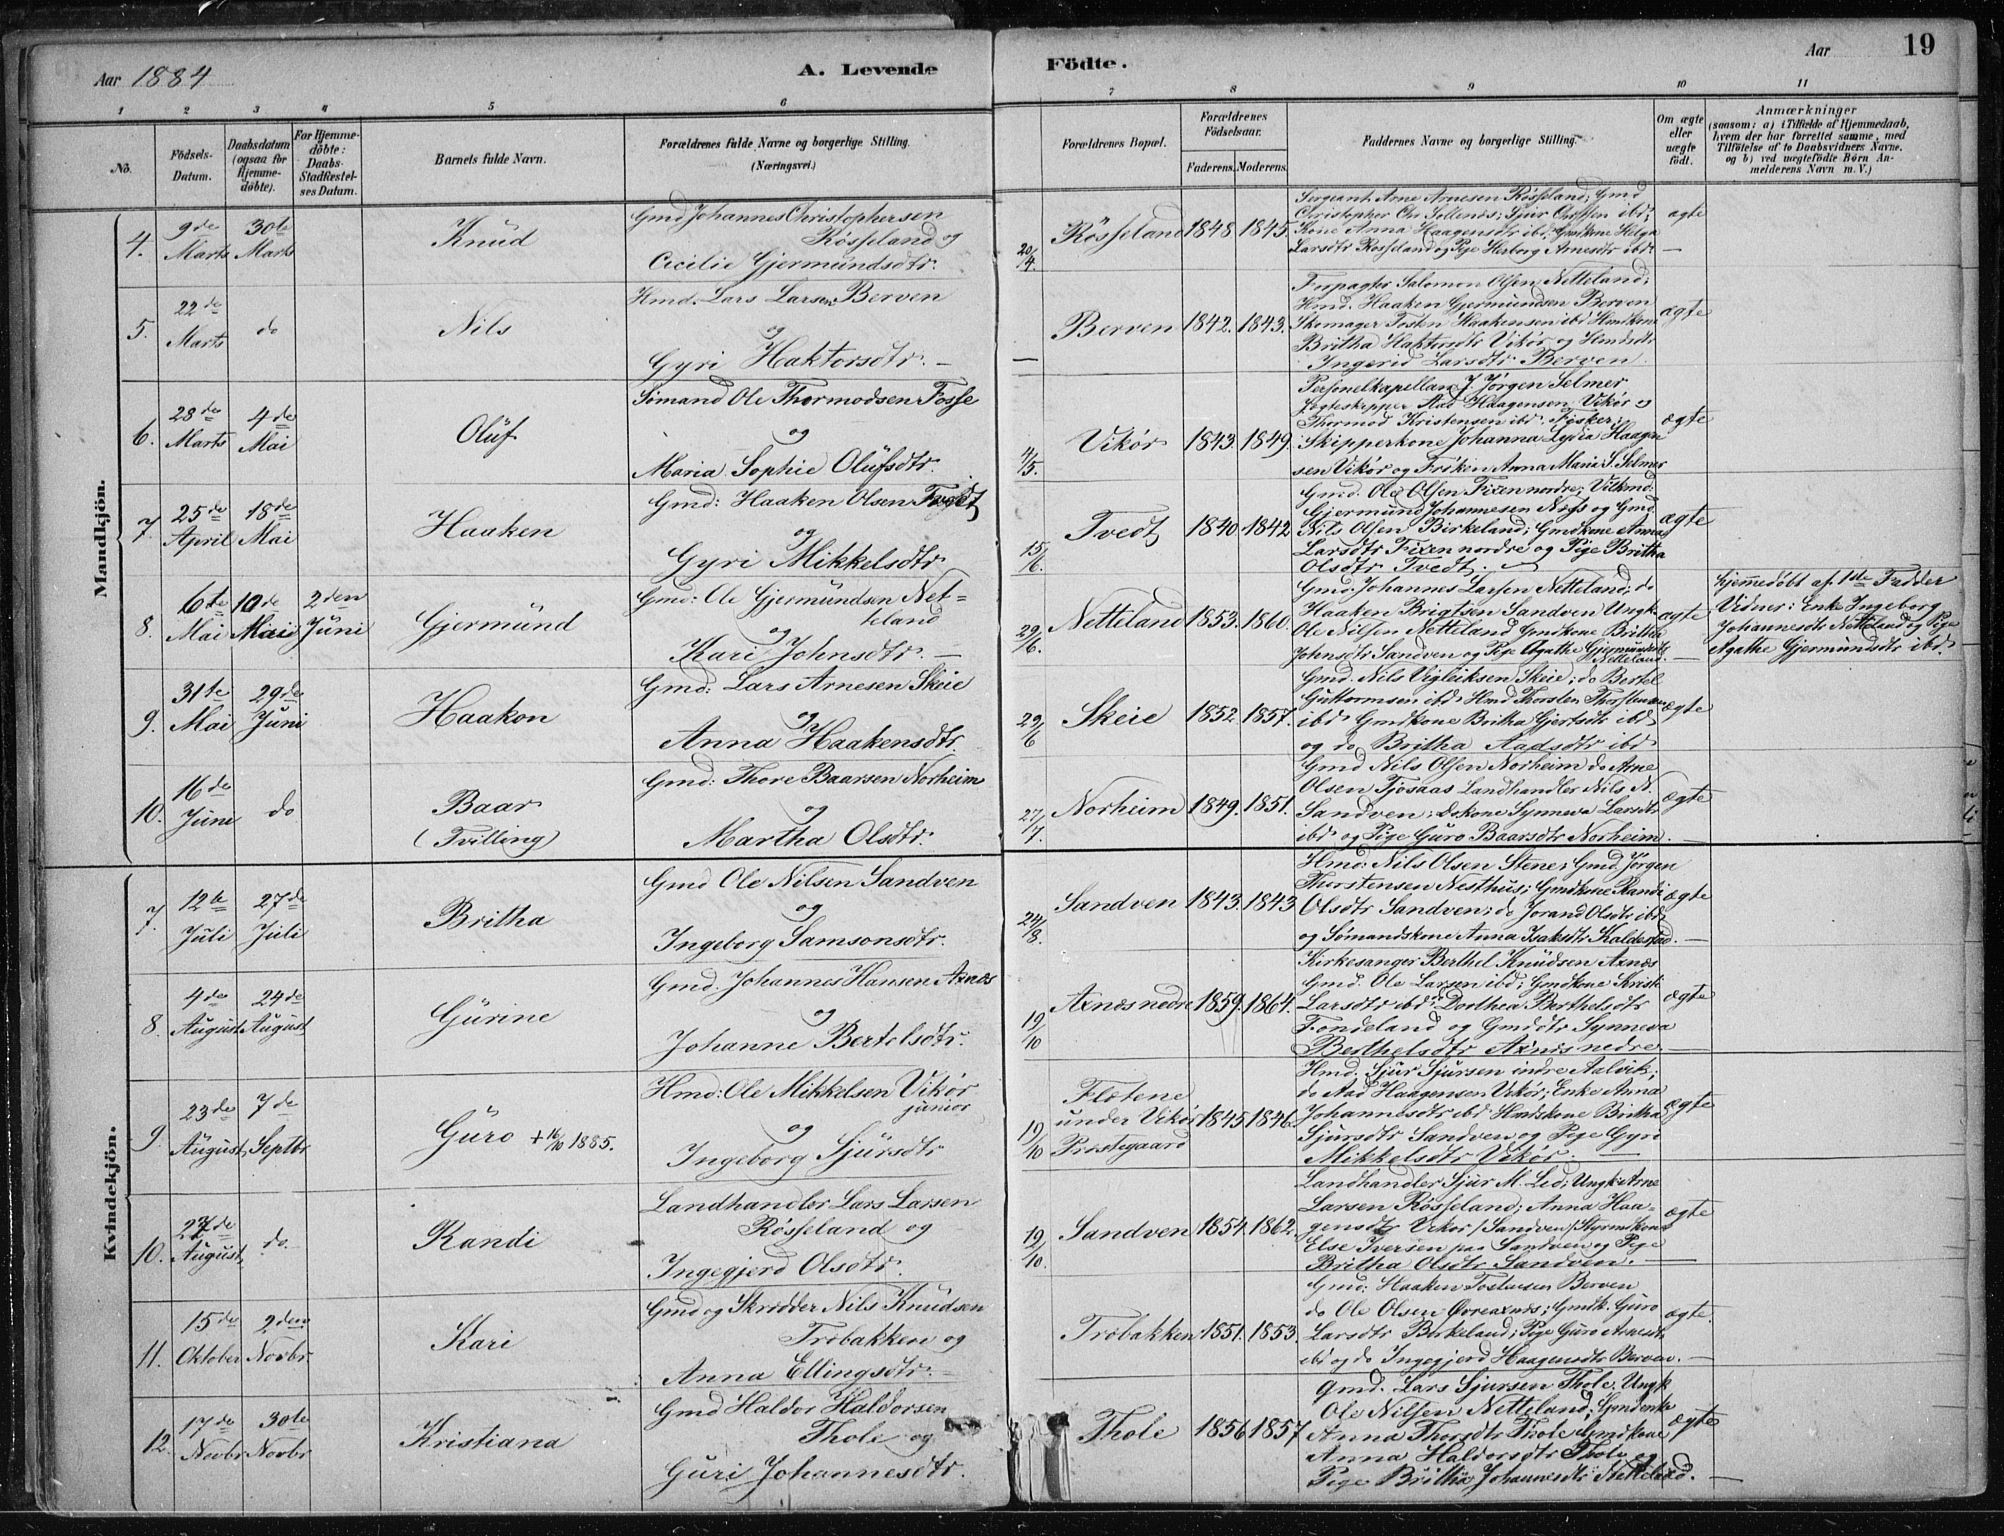 Aar 1884
A. Levende
Födte.
Aar
19
1
2
3
4
5
6
7
8
9
10
11
No.
Födsels-Datum.
Daabsdatum (ogsaa for Hjemmedøbte).
For Hjemmedöbte: Daabs-Stadfæstelses Datum.
Barnets fulde Navn.
Forældrenes fulde Navne og borgerlige Stilling.
(Næringsvei.)
Forældrenes Bopæl.
Forældrenes Födselsaar.
Faderens.
Moderens.
Faddernes Navne og borgerlige Stilling.
Om ægte eller uægte födt.
Anmærkninger
(saasom: a) i Tilfælde af Hjemmedaab,
hvem der har forrettet samme, med
Tilföielse af to Daabsvidners Navne.
og b) ved uægtefödte Börn Anmelderens Navn m. V.)
Mandkjön.
4.
9de Marts
30te Marts
Knud
Gmd Johannes Christophersen
Røsseland og
Cicilie Gjermundsdtr.
20/4
Røsseland
1848
1845.
Sergeant Arne Arnesen Røsseland; Gmd
Christopher Chr Sollenæs; Sjur Olsen ibd;
Kone Anna Haagensdtr ibd; Gmdkone Helga
Larsdtr Røsseland og Pige Herborg Arnesdtr ibd.
ægte
5.
22de Marts
do
Nils
Hmd. Lars Larsen Berven
og
Gyri Haktorsdtr.
Berven
1842.
1843.
Forpagter Salomon Olsen Netteland;
Hmd. Haaken Gjermundsen Berven
Skomager Tosten Haakensen ibd Hmdkone
Britha Haktorsdtr Vikør og Hmdsdtr
Ingerid Larsdtr Berven
ægte
6.
28de Marts
4de Mai
Oluf
Sømand Ole Thormodsen Fosse
og
Maria Sophie Olufsdtr.
4/5.
Vikør
1843.
1849.
Personelkapellan J. Jørgen Selmer
Jægteskipper Aad Haagensen Vikør og
Thormod Kristensen ibd. Fisker;
Skipperkone Johanna Lydia Haagensen
Vikør og Frøken Anna Maria S. Selmer
ægte
7.
25de April
18de Mai
Haaken
Gmd: Haaken Olsen Tvedt
og
Gyri Mikkelsdtr.
15/6.
Tvedt
1840.
1842
Gmd. Ole Olsen Fixen nordre; Vilkmd.
Gjermund Johannesen Næss og Gmd.
Nils Olsen Birkeland; Gmdkone Anna
Larsdtr Fixen nordre og Pige Britha
Olsdtr Tvedt.
ægte
8.
6te Mai
10de Maii
2den Juni
Gjermund
Gmd: Ole Gjermundsen Net=
teland
og
Kari Johnsdtr.
29/6.
Netteland
1853.
1860.
Gmd. Johannes Larsen Netteland; do
Haaken Brigtsen Sandven Ungk.
Ole Nilsen Netteland Gmdkone Britha
Johnsdtr Sandven og Pige Agathe Gjermundsdtr
Netteland.
ægte
hjemedøbt af 1ste Fadder
Vidner: Enke Ingeborg
Johannesdtr Netteland og Pige
Agathe Gjermundsdtr ibd.
9.
31te Mai
29de Juni
Haakon
Gmd: Lars Arnesen Skeie
og
Anna Haakensdtr.
29/6
Skeie
1852.
1857.
Gmd. Nils Vigleiksen Skeie; do Bertel
Guttormsen ibd Hmd Thorsten Thorstensen
ibd Gmdkone Britha Gjertsdtr ibd
og do Britha Aadsdtr ibd
ægte
10.
16de Juni
do
Baar
(Tvilling)
Gmd: Thore Baarsen Norheim
og
Martha Olsdtr.
27/7.
Norheim
1849.
1851.
Gmd Nils Olsen Norheim do Arne
Olsen Tjosaas Landhandler Nils N.
Sandven; do kone Synneva Larsdtr
ibd og Pige Guro Baarsdtr Norheim.
ægte
Kvindekjön.
7.
12te Juli
27de Juli
Britha
Gmd Ole Nilsen Sandven
og
Ingeborg Samsonsdtr.
24/8.
Sandven
1843.
1843
Hmd: Nils Olsen Stene; Gmd Jørgen
Thorstensen Nesthus; Gmdkone Randi
Olsdtr Sandven; do Jorand Olsdtr ibd
og Sømandskone Anna Isaksdtr Kaldestad.
ægte
8.
4de August
24de August
Gurine
Gmd. Johannes Hansen Axnæs
og
Johanne Bertelsdtr.
19/10
Axnæs nedre
1859.
1864.
Kirkesanger Berthel Knudsen Axnæs
Gmd. Ole Larsen ibd; Gmdkone Kristi
Larsdtr ibd; Dorthea Berthelsdtr
Fondeland og Gmdsdtr Synneva
Berthelsdtr Axnæs nedre
ægte
9.
23de August
7de Septbr
Guro + 16/10 1885.
Hmd: Ole Mikkelsen Vikør
junior
og
Ingeborg Sjursdtr
19/10
Flotene
under Vikør
Prestegaard
1845
1846.
Hmd. Sjur Sjursen indre Aalvik;
do Aad Haagensen Vikør; Enke Anna
Johannesdtr ibd Hmdskone Britha
Sjursdtr Sandven og Pige Gyri
Mikkelsdtr Vikør.
ægte
10.
27de August
do.
Randi
Landhandler Lars Larsen
Røsseland og
Ingegjerd Olsdtr.
19/10
Sandven
1854.
1862.
Landhandler Sjur M. Lid; Ungk Arne
Larsen Røsseland; Anna Haa-
gensdtr Vikør /Sandven/ Styrmskone
Else Iversen paa Sandven og Pige
Britha Olsdtr Sandven.
ægte
11.
15de Oktober
2den Novbr.
Kari
Gmd og Skrædder Nils Knudsen
Trobakken og
Anna Ellingsdtr.
Trobakken
1851.
1853.
Gmd: Haaken Tostensen Berven
do Ole Olsen Øvreaxnæs; Gmdk. Guro
Larsdtr Birkeland; Pige Guro Arnesdtr
ibd og do Ingegjerd Haagensdtr Berven.
ægte.
12.
17de Novbr
30te Novbr
Kristiana
Gmd Haldor Haldorsen
Thole og
Guri Johannesdtr.
Thole
1856
1857
Gmd. Lars Sjursen Thole. Ungk
Ole Nilsen Netteland; Gmdenke
Anna Thorsdtr Thole Gmdkone
Anna Haldorsdtr Thole og
Pige Britha Johannesdtr Netteland.
ægte